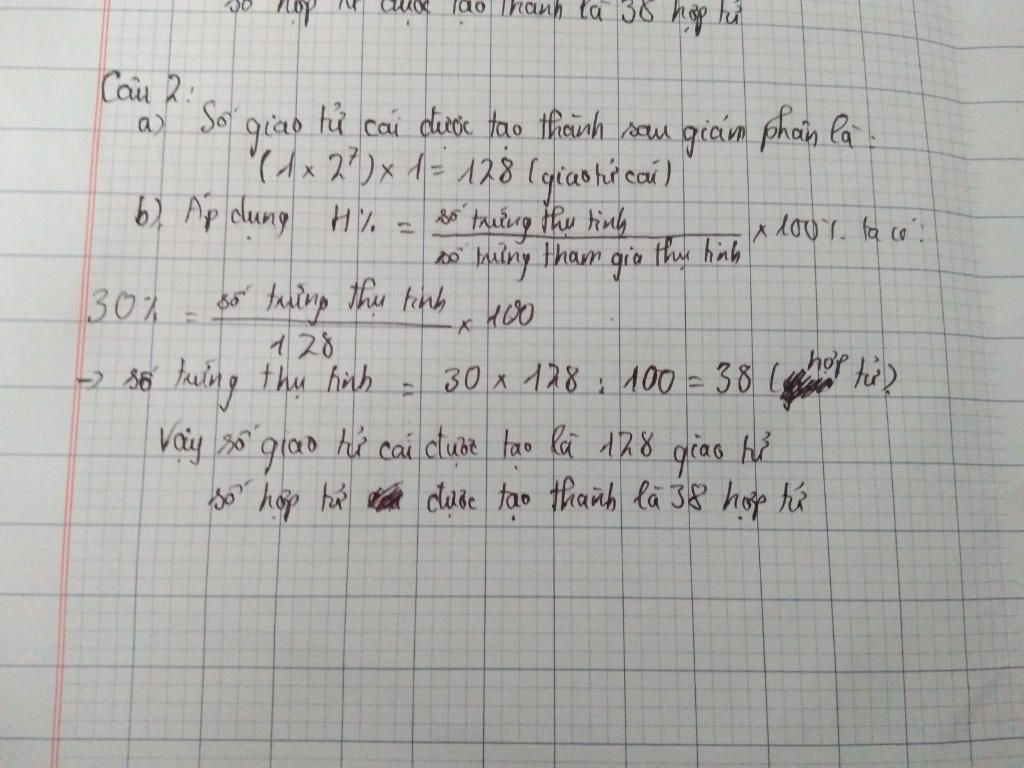 số hợp tử được tạo thành là 38 hợp tử
Câu 2:
a) Số giao tử cái được tạo thành sau giảm phân là:
(1 x 2^7) x 1 = 128 (giao tử cái)
b) Áp dụng H% = số trứng thụ tinh / số trứng tham gia thụ tinh x 100%. ta có:
30% = số trứng thụ tinh / 128 x 100
-> số trứng thụ tinh = 30 x 128 : 100 = 38 (hợp tử)
Vậy số giao tử cái được tạo là 128 giao tử
số hợp tử được tạo thành là 38 hợp tử